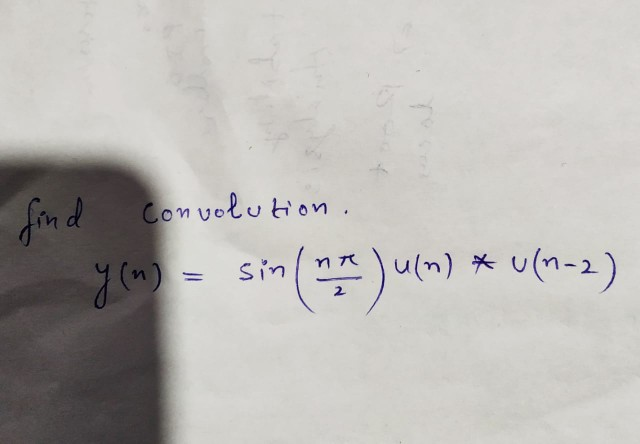 find convolution.
y(n) = sin(nπ/2)u(n) * u(n-2)